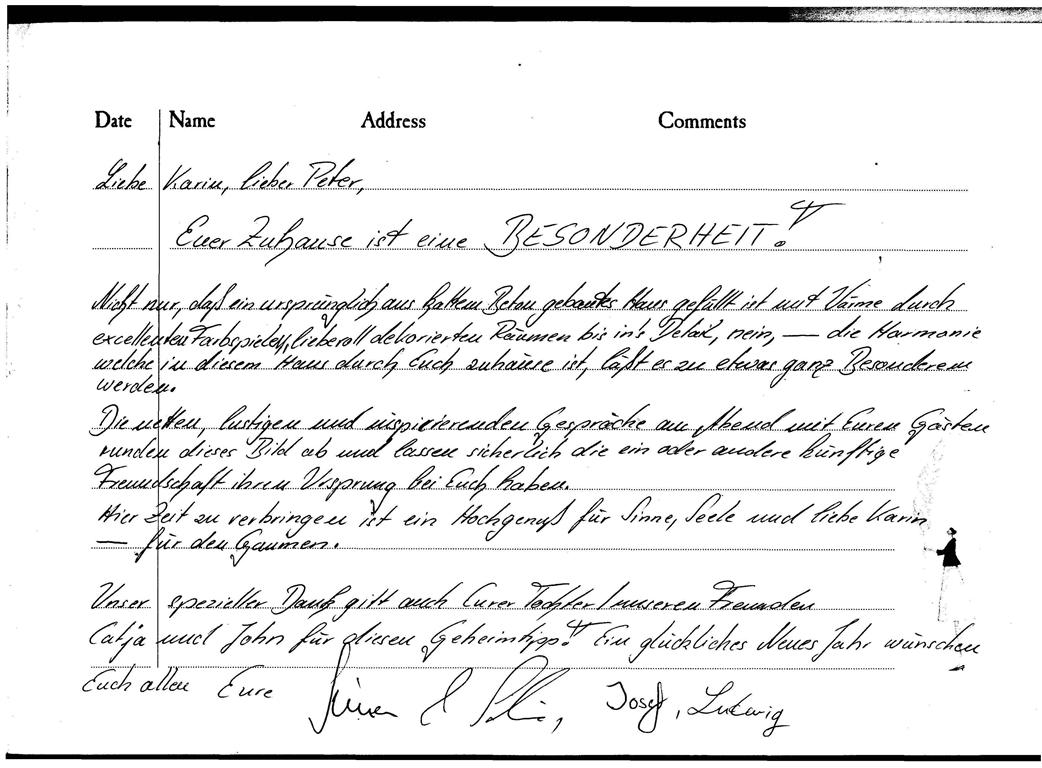 Date Name Address Comments
Liebe Karin, lieber Peter,
Euer Zuhause ist eine BESONDERHEIT!
Nicht nur, daß ein ursprünglich aus kaltem Beton gebautes Haus gefüllt ist mit Wärme durch
excellenten Farbspielen, liebevoll dekorierten Räumen bis in's Detail, nein, — die Harmonie
welche in diesem Haus durch Euch zuhause ist, läßt es zu etwas ganz Besonderem
werden.
Die netten, lustigen und inspirierenden Gespräche am Abend mit Euren Gästen
runden dieses Bild ab und lassen sicherlich die ein oder andere künftige
Freundschaft ihren Ursprung bei Euch haben.
Hier Zeit zu verbringen ist ein Hochgenuß für Sinne, Seele und liebe Karin
— für den Gaumen.
Unser spezieller Dank gilt auch Eurer Tochter / unseren Freunden
Catja und John für diesen Geheimtipp! Ein glückliches Neues Jahr wünschen
Euch allen Eure Josef, Ludwig